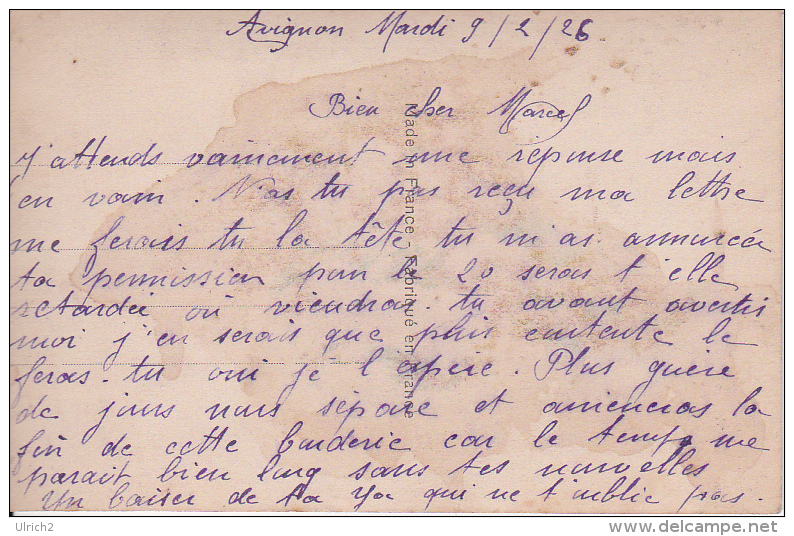 Avignon Mardi 9/2/26
Bien cher Marcel
J'attends vainement une réponse mais
en vain. N'as tu pas reçu ma lettre
me ferais tu la tête tu m'as annoncée
ta permission pour le 20 serais t'elle
retardée où viendras-tu avant avertis
moi j'en serais que plus contente le
feras-tu oui je l'espère. Plus guère
de jours nous sépare et amèneras la
fin de cette bouderie car le temps me
parait bien long sans tes nouvelles
Un baiser de ta Ya qui ne t'oublie pas.
Made in France - Fabriqué en France
Ulrich2
delcampe.net